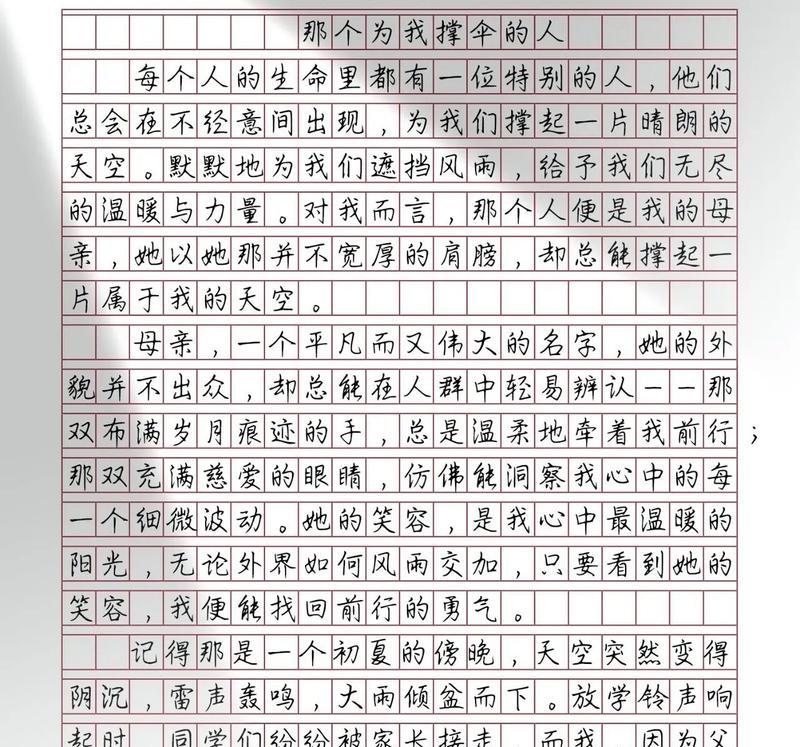 那个为我撑伞的人
每个人的生命里都有一位特别的人，他们
总会在不经意间出现，为我们撑起一片晴朗的
天空。默默地为我们遮挡风雨，给予我们无尽
的温暖与力量。对我而言，那个人便是我的母
亲，她以她那并不宽厚的肩膀，却总能撑起一
片属于我的天空。
母亲，一个平凡而又伟大的名字，她的外
貌并不出众，却总能在人群中轻易辨认——那
双布满岁月痕迹的手，总是温柔地牵着我前行；
那双充满慈爱的眼睛，仿佛能洞察我心中的每
一个细微波动。她的笑容，是我心中最温暖的
阳光，无论外界如何风雨交加，只要看到她的
笑容，我便能找回前行的勇气。
记得那是一个初夏的傍晚，天空突然变得
阴沉，雷声轰鸣，大雨倾盆而下。放学铃声响
起时，同学们纷纷被家长接走，而我，因为父